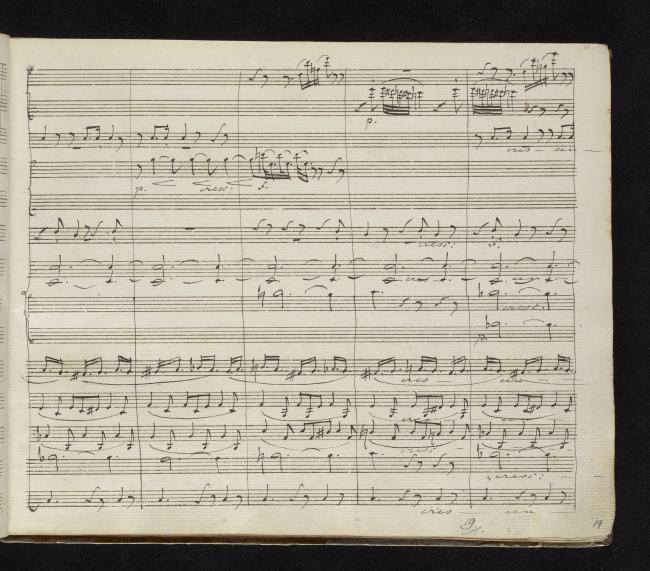 p.
cres - cen -
p. cresc: f.
cresc: p.
cres - cen -
cresc:
p.
cres - cen -
cresc:
cresc:
cres - cen -
19
19